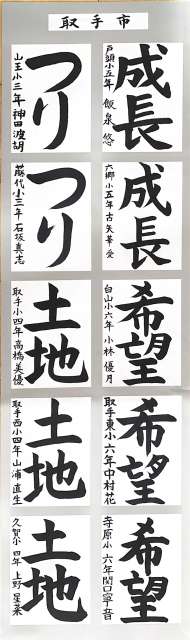 取手市
成長
戸頭小五年 飯泉 悠
成長
六郷小五年 古矢華愛
希望
白山小六年 小林優月
希望
取手東小六年 中村花
希望
寺原小六年 関口寧音
つり
山王小三年 神田渡胡
つり
藤代小三年 石坂真志
土地
取手小四年 高橋美優
土地
取手西小四年 山浦直生
土地
久賀小四年 上野星菜